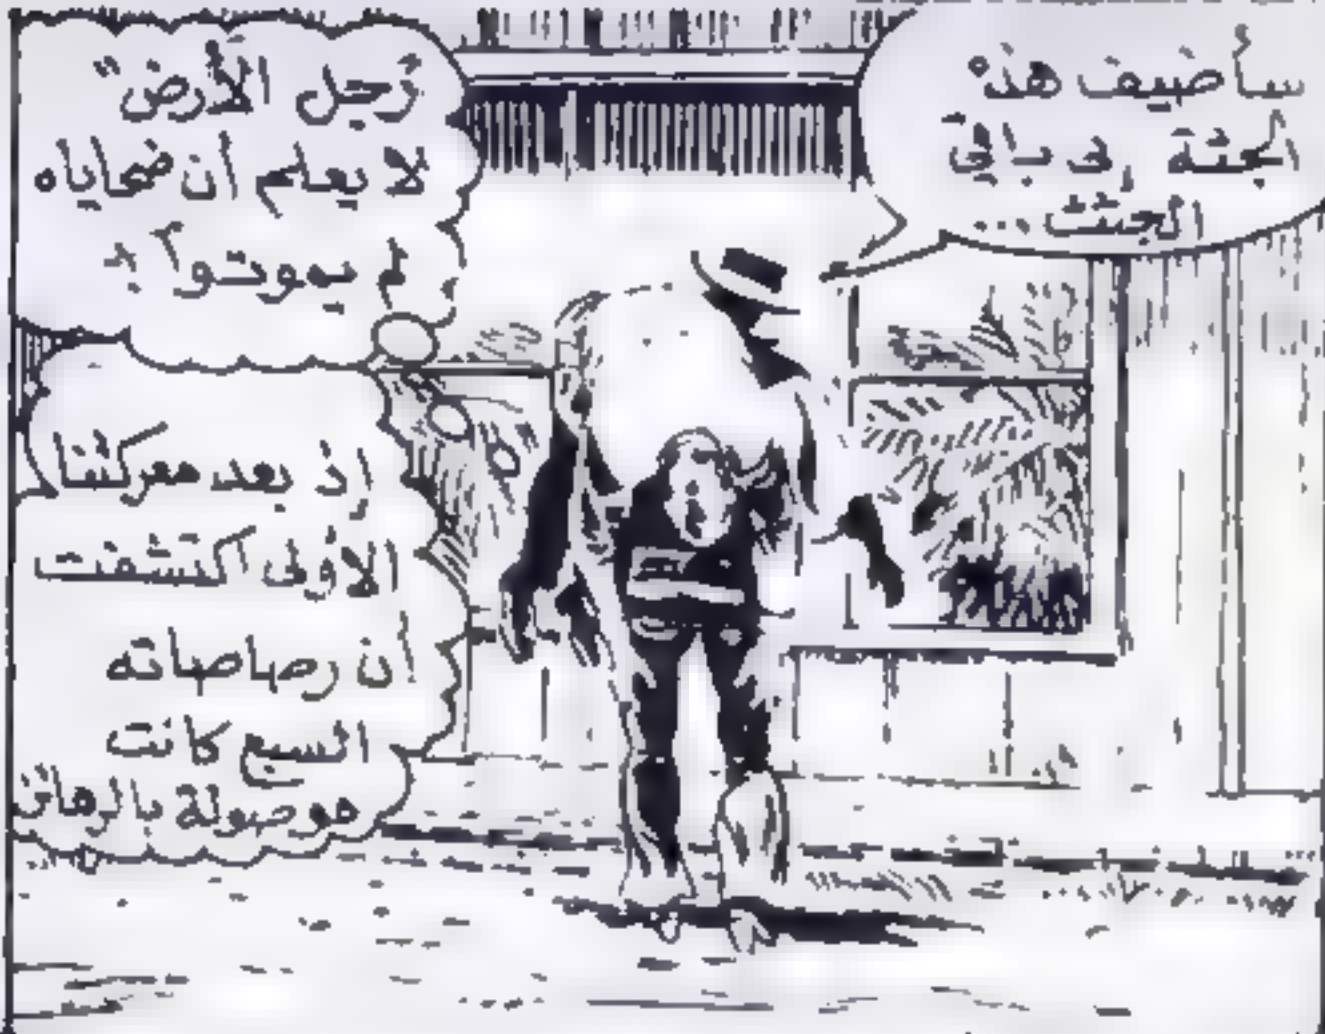 سأضيف هذه
الجثة إلى باقي
الجثث...
"رجل الأرض"
لا يعلم أن ضحاياه
لم يموتوا !
إذ بعد معركتنا
الأولى اكتشفت
أن رصاصاته
السبع كانت
موصولة بالزمان